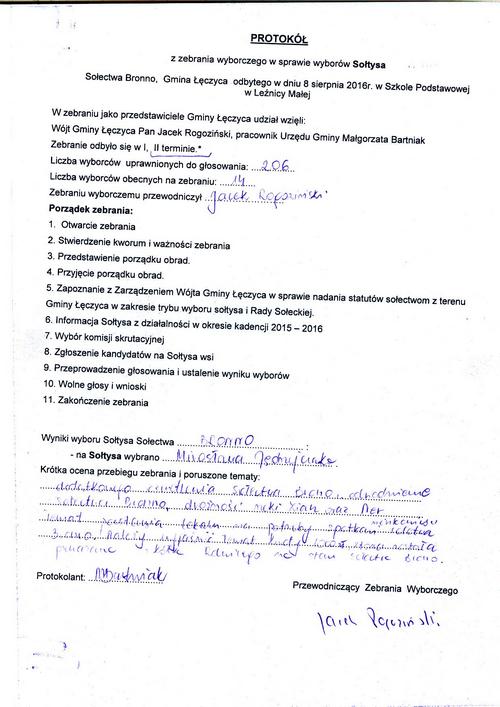 PROTOKÓŁ
z zebrania wyborczego w sprawie wyborów Sołtysa
Sołectwa Bronno, Gmina Łęczyca odbytego w dniu 8 sierpnia 2016r. w Szkole Podstawowej
w Leźnicy Małej
W zebraniu jako przedstawiciele Gminy Łęczyca udział wzięli:
Wójt Gminy Łęczyca Pan Jacek Rogoziński, pracownik Urzędu Gminy Małgorzata Bartniak
Zebranie odbyło się w I, II terminie.*
Liczba wyborców uprawnionych do głosowania: 206
Liczba wyborców obecnych na zebraniu: 14
Zebraniu wyborczemu przewodniczył Jacek Rogoziński
Porządek zebrania:
1. Otwarcie zebrania
2. Stwierdzenie kworum i ważności zebrania
3. Przedstawienie porządku obrad.
4. Przyjęcie porządku obrad.
5. Zapoznanie z Zarządzeniem Wójta Gminy Łęczyca w sprawie nadania statutów sołectwom z terenu
Gminy Łęczyca w zakresie trybu wyboru sołtysa i Rady Sołeckiej.
6. Informacja Sołtysa z działalności w okresie kadencji 2015 – 2016
7. Wybór komisji skrutacyjnej
8. Zgłoszenie kandydatów na Sołtysa wsi
9. Przeprowadzenie głosowania i ustalenie wyniku wyborów
10. Wolne głosy i wnioski
11. Zakończenie zebrania
Wyniki wyboru Sołtysa Sołectwa BRONNO
- na Sołtysa wybrano Mirosława
Krótka ocena przebiegu zebrania i poruszone tematy:
dodatkowego oświetlenia sołectwa Bronno, odwodnienie
sołectwa Bronno, drożności rzeki oraz
temat lokalu na potrzeby spotkań mieszkańców sołectwa
Bronno. Należy wyjaśnić temat kiedy została
na stan sołectwa Bronno.
Protokolant: MBartniak
Przewodniczący Zebrania Wyborczego
Jacek Rogoziński